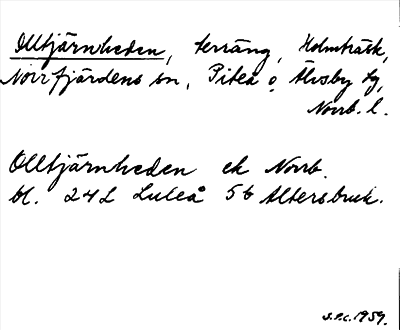 Olltjärnheden, terräng, Holmträsk,
Norrfjärdens sn, Piteå o Älvsby tg,
Norrb. l.
Olltjärnheden ek Norrb.
bl. 24L Luleå 5b Altersbruk.
S.P.C. 1959.